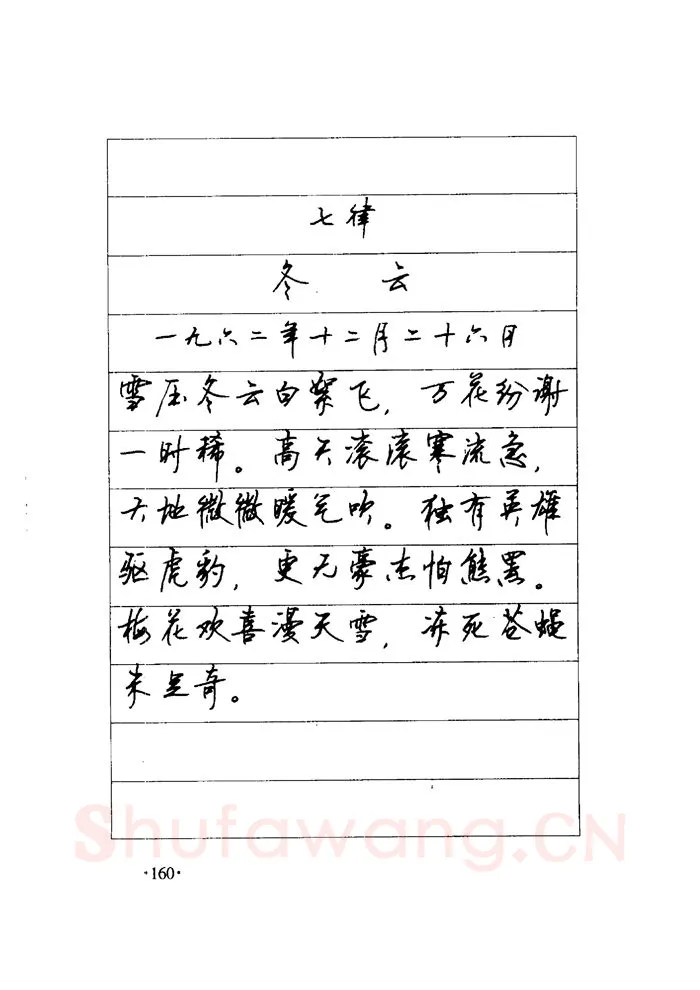 七律
冬 云
一九六二年十二月二十六日
雪压冬云白絮飞，万花纷谢
一时稀。高天滚滚寒流急，
大地微微暖气吹。独有英雄
驱虎豹，更无豪杰怕熊罴。
梅花欢喜漫天雪，冻死苍蝇
未足奇。
Shufawang.CN
·160·